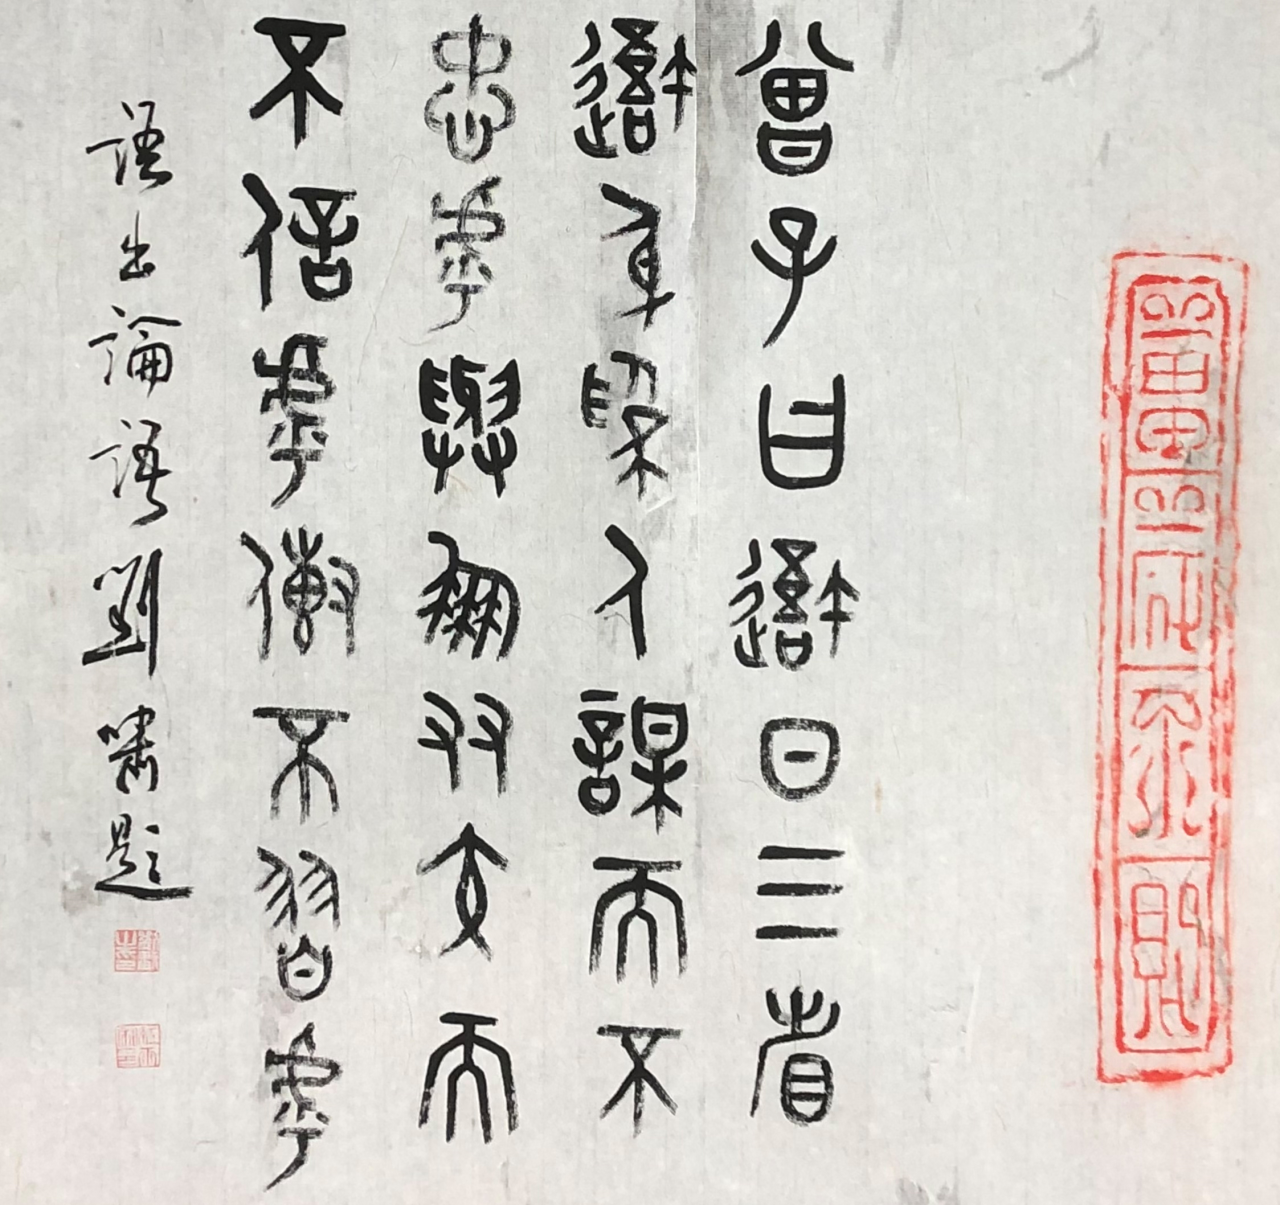 曾子曰吾日三省
吾身為人謀而不
忠乎與朋友交而
不信乎傳不習乎
語出論語劉嘯題